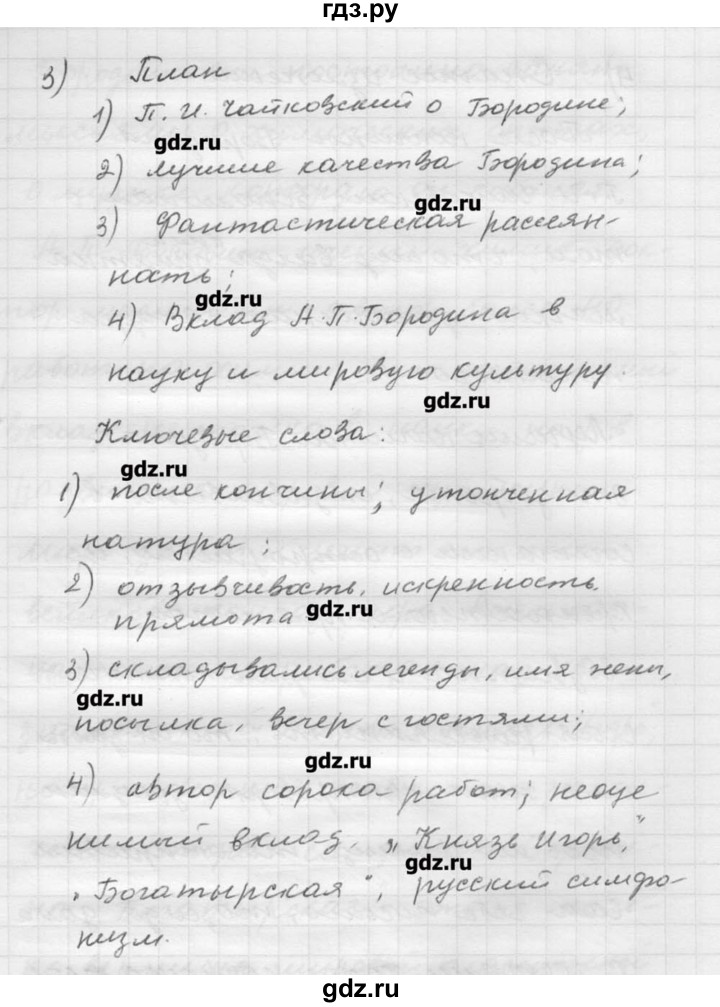 гдз.ру
3) План
1) П. И. Чайковский о Бородине;
gdz.ru
2) лучшие качества Бородина;
gdz.ru
3) Фантастическая рассеян-
ность;
gdz.ru
4) Вклад А.П.Бородина в
науку и мировую культуру.
gdz.ru
Ключевые слова:
gdz.ru
1) после кончины; утонченная
натура;
2) отзывчивость, искренность,
прямота
gdz.ru
3) складывались легенды, имя жены,
gdz.ru
посылка, вечер с гостями;
gdz.ru
4) автор сорока работ; неоце
нимый вклад, „Князь Игорь,"
gdz.ru
„Богатырская", русский симфо-
низм.
gdz.ru